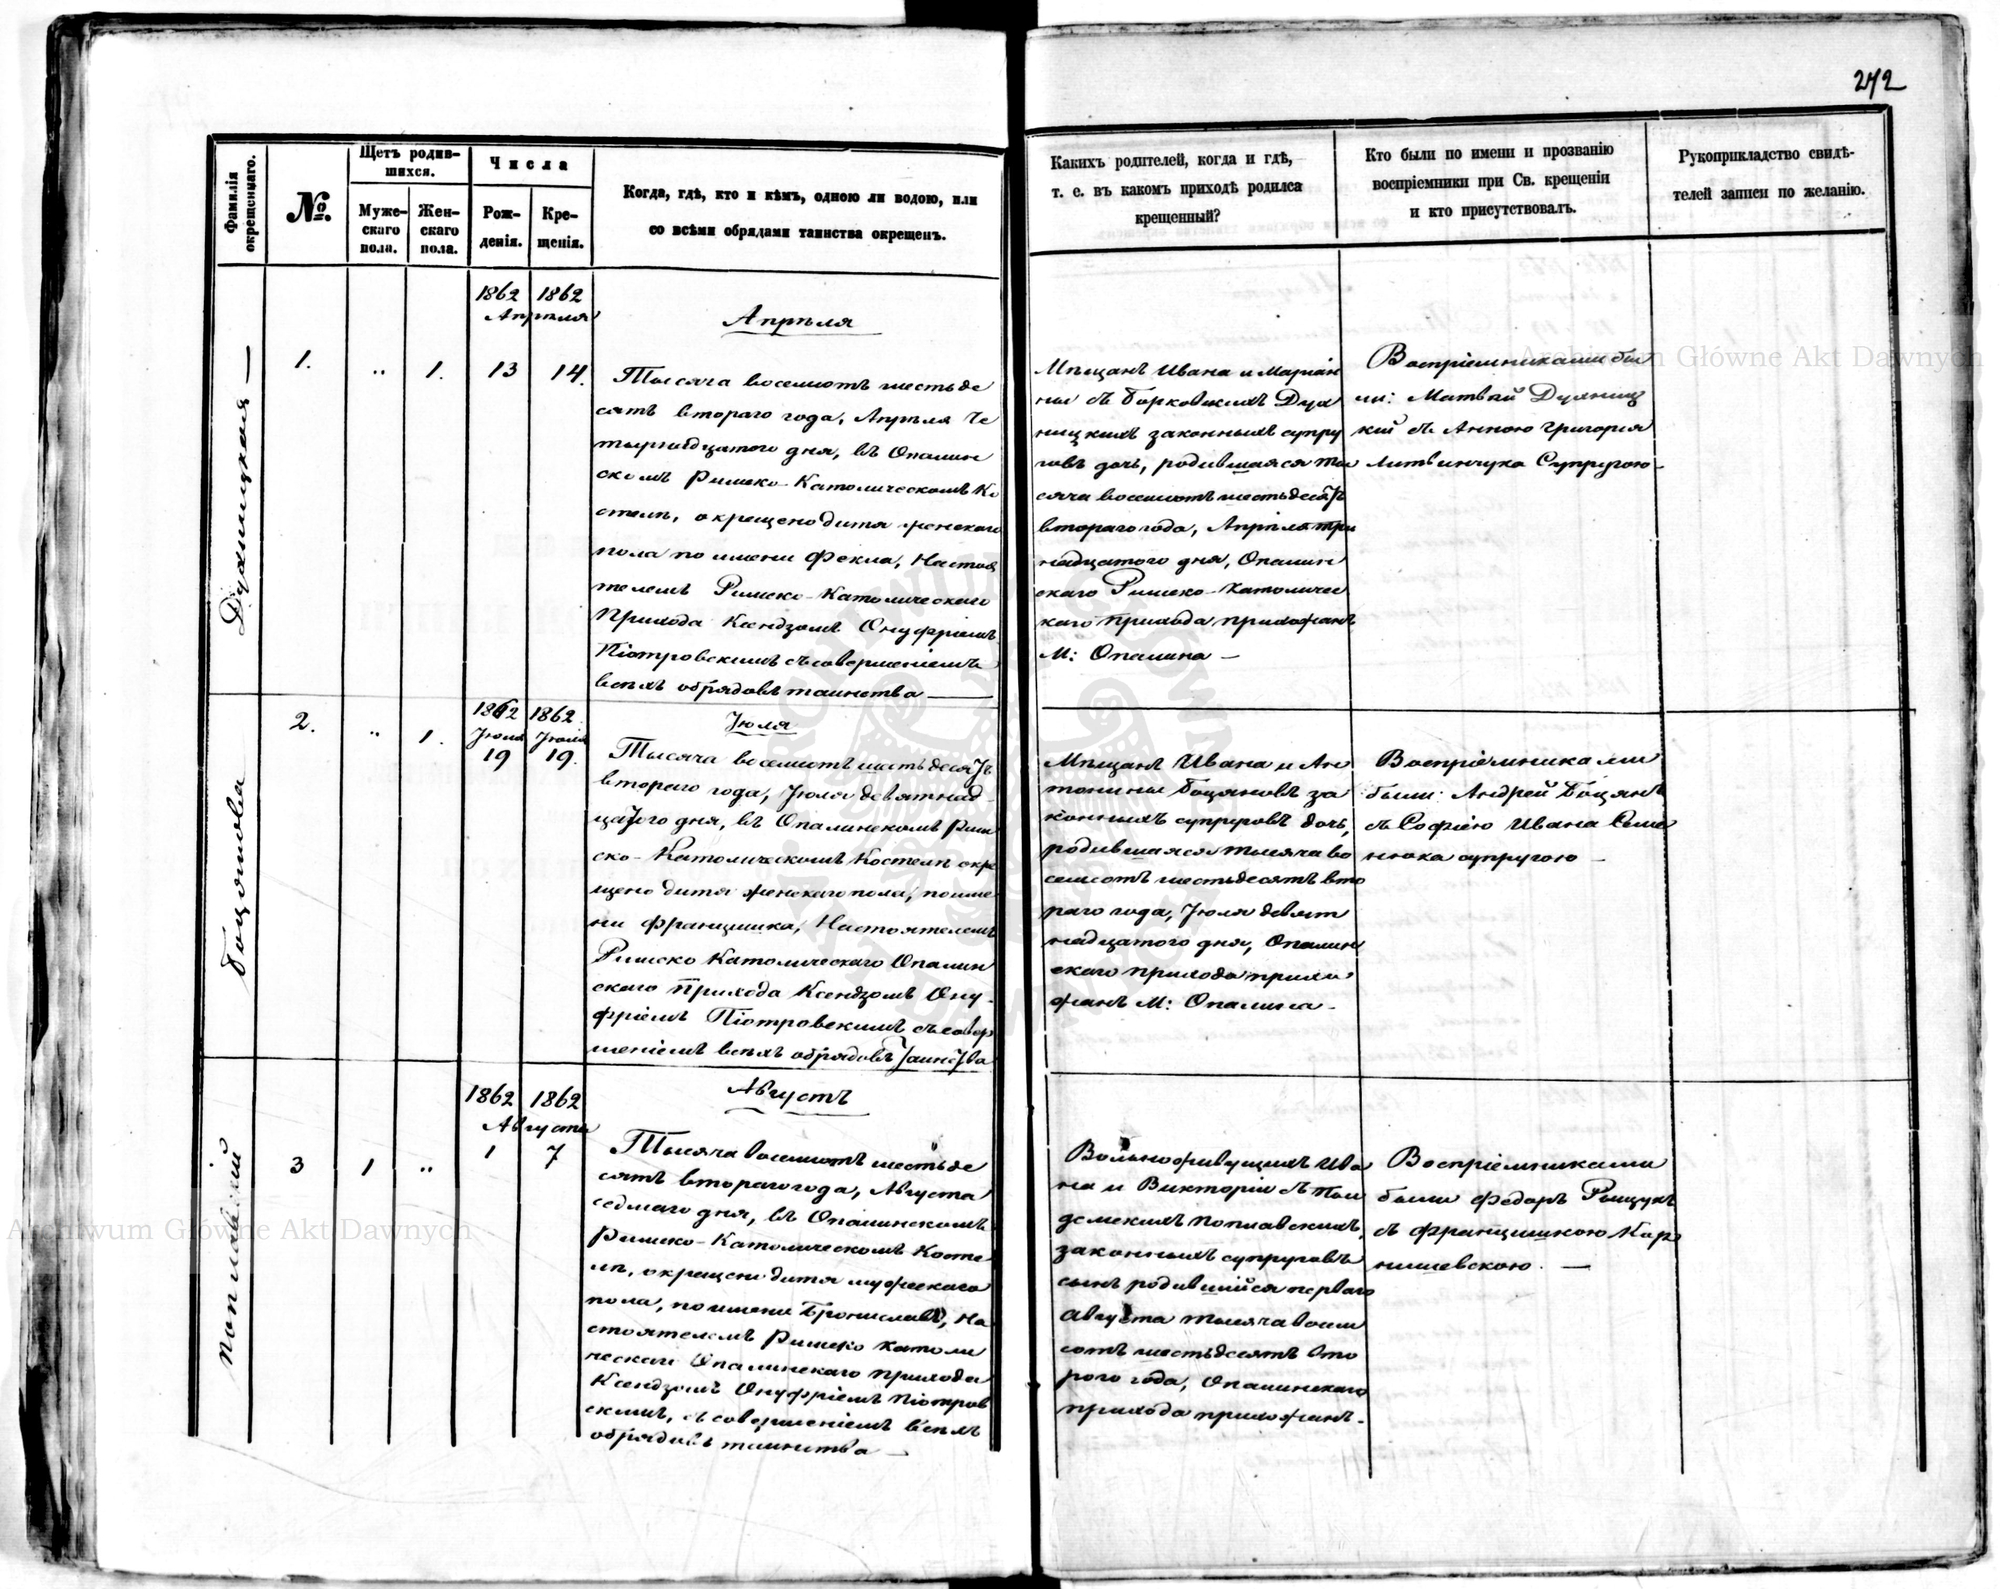 272
Фамилія окрещеннаго.
№.
Щетъ родив-
шихся.
Муже-
скаго
пола.
Жен-
скаго
пола.
Числа
Рож-
денія.
Кре-
щенія.
Когда, гдѣ, кто и кѣмъ, одною ли водою, или
со всѣми обрядами таинства окрещенъ.
Какихъ родителей, когда и гдѣ,
т. е. въ какомъ приходѣ родился
крещенный?
Кто были по имени и прозванію
воспріемники при Св. крещеніи
и кто присутствовалъ.
Рукоприкладство свидѣ-
телей записи по желанію.
1862 1862
Апрѣля
Апрѣля
1. " 1. 13 14.
Тысяча восемьсотъ шестьде
сятъ втораго года, Апрѣля Че
тырнадцатого дня, въ Опалин
скомъ Римско-Католическомъ Ко
стелѣ, окрещено дитя женскаго
пола по имени Фекла, Настоя
телемъ Римско-Католическаго
Прихода Ксендзомъ Онуфріемъ
Піотровскимъ съ совершеніемъ
всѣхъ обрядовъ таинства —
Мѣщанъ Ивана и Маріан
ны съ Борковскихъ
ницкихъ законныхъ супру
говъ дочь, родившаяся ты
сяча восемьсотъ шестьдесятъ
втораго года, Апрѣля три
надцатого дня, Опалин
скаго Римско-Католичес
каго прихода прихожанъ
М: Опалина —
Воспріемниками бы
ли: Матвѣй
кій съ Анною Григорія
Литвинчука Супругою —
Боцонова
1862 1862
Іюля Іюля
Іюля
2. " 1. 19 19.
Тысяча восемьсотъ шестьдесятъ
втораго года, Іюля девятнад-
цатого дня, въ Опалинскомъ Рим
ско-Католическомъ Костелѣ окре
щено дитя женскаго пола, по име
ни Францишка, Настоятелемъ
Римско Католическаго Опалин
скаго Прихода Ксендзомъ Ону-
фріемъ Піотровскимъ съ совер
шеніемъ всѣхъ обрядовъ таинства
Мѣщанъ Ивана и Ан
тонины Боцяновъ за
конныхъ супруговъ дочь,
родившаяся тысяча во
семсотъ шестьдесятъ вто
раго года, Іюля девят
надцатого дня, Опалин
скаго прихода прихо
жанъ М: Опалина —
Воспріемниками
были: Андрей Боцянъ
съ Софіею Ивана Семе
нюка супругою —
Поплавскій
1862 1862
Августа
Августъ
3 1 " 1 7
Тысяча восемьсотъ шестьде
сятъ втораго года, Августа
седмаго дня, въ Опалинскомъ
Римско-Католическомъ Косте
лѣ, окрещено дитя мужескаго
пола, по имени Брониславъ, На
стоятелемъ Римско Католи
ческаго Опалинскаго прихода
Ксендзомъ Онуфріемъ Піотров
скимъ, съ совершеніемъ всѣхъ
обрядовъ таинства —
Вольноживущихъ Ива
на и Викторіи съ
Поплавскихъ,
законныхъ супруговъ
сынъ родившійся перваго
Августа тысяча восем
сотъ шестьдесятъ вто
рого года, Опалинскаго
прихода прихожанъ.
Воспріемниками
были Федоръ Рыщукъ
съ Францишкою Кар
нишевскою. —
Archiwum Główne Akt Dawnych
Archiwum Główne Akt Dawnych